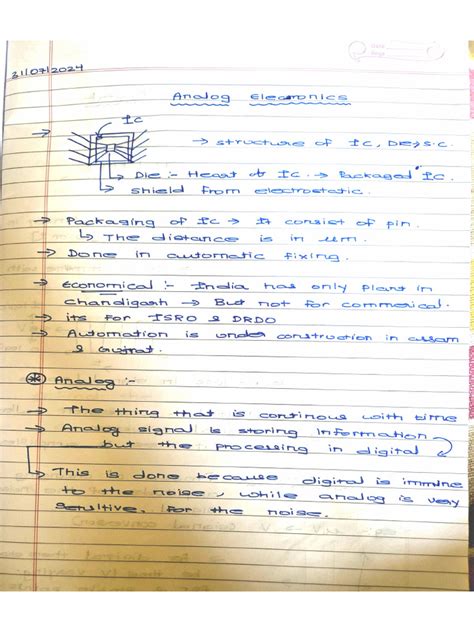 31/07/2024
Analog Electronics
Ic
→ structure of Ic, DE, s.c.
→ Die :- Heart of Ic. → Packaged Ic.
→ shield from electrostatic.
→ Packaging of Ic → It consist of pin.
↳ The distance is in um.
→ Done in automatic fixing.
→ Economical :- India has only plant in
chandigarh → But not for commerical.
→ its for ISRO & DRDO
→ Automation is under construction in assam
& Gujrat.
* Analog :-
→ The thing that is continous with time
→ Analog signal is storing information
but the processing in digital
↳ This is done because digital is immine
to the noise, while analog is very
sensitive. for the noise.